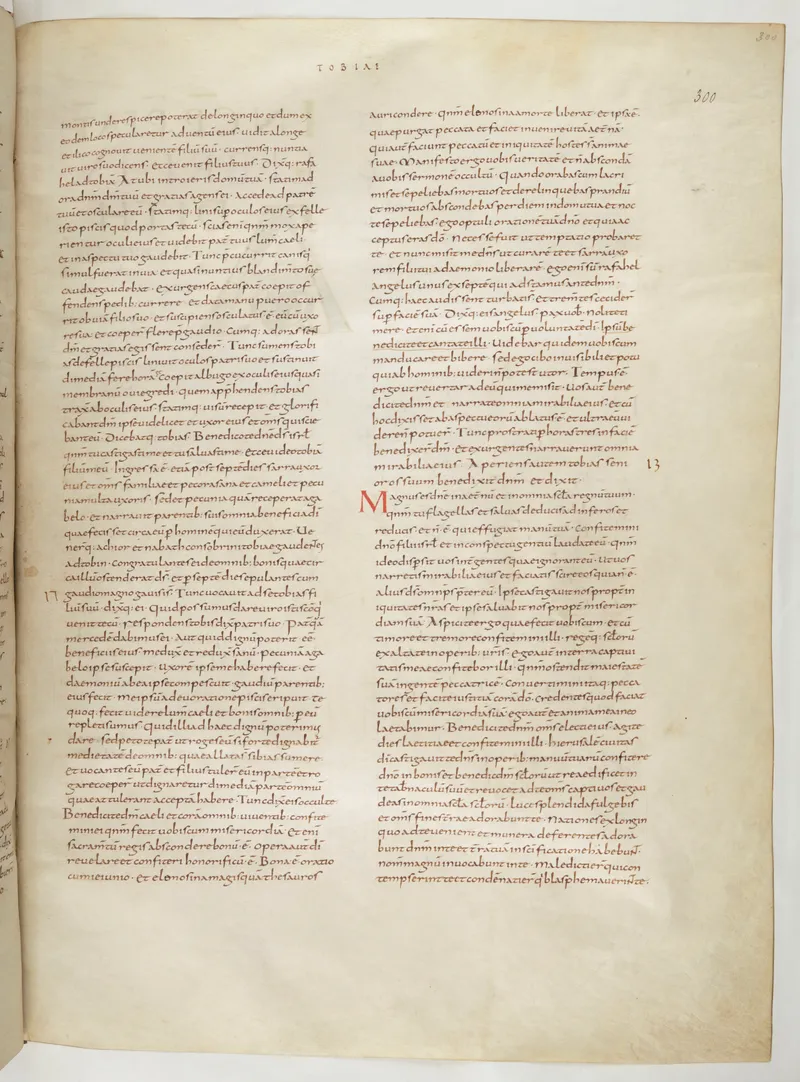 TOBIAS
300
300
montis unde respicere poterat de longinquo et dum ex
eodem loco specularetur aduentū eius uidit a longe
et ilico cognouit uenientē filiū suū · currensq; nuntia
uit uiro suo dicens · Ecce uenit filius tuus · Dixq; rafa
hel ad tobiā · At ubi introieris domū tuā · statim ad
ora dnm dm tuū et gratias agens ei · Accede ad patrē
tuū et osculare eū · statimq; lini sup oculos eius ex felle
isto piscis quod portas tecū · scias enī qnm mox ape
rientur oculi eius et uidebit pat tuus lum caeli
et in aspectu tuo gaudebit · Tunc pcucurrit canis q
simul fuerat in uia · et quasi nuntius blandim to sue
caudae gaudebat · et exurgens caecus pat coepit of
fendens pedib; currere · et data manu puero occur
rit obuiā filio suo · et suscipiens osculatus ē eū cū uxo
re sua · et coeper flere p gaudio · Cumq; adorassent
dm et gratias egissent conseder · Tunc sumens tobi
as de felle piscis liniuit oculos patris uo et sustinuit
dimediā fere horā · Coepit albugo ex oculis eius quasi
membranū oui egredi · quem apphendens tobias
traxit ab oculis eius · statimq; uisū recepit · et glorifi
cabant dm ipse uidelicet et uxor eius et oms qui scie
bant eū · Dicebatq; tobias · Benedico te dne ds isrl
qnm tu castigasti me et tu saluasti me · et ecce uideo tobiā
filiū meū · Ingressa ē · etiā post septē dies sarra uxor
eius et oms familia et pecora sana et cameli et pecu
nia multa uxoris · sed et pecunia quā receperat a ga
belo · et narrauit parentib; suis omnia beneficia di
quae fecisset circa eū p hominē qui eū duxerat · Ue
nerq; achior et nabath consobrini tobiae gaudentes
ad tobin · Congratulantes ei de omnib; bonis quae cir
ca illū ostenderat ds · et p septē dies epulantes cum
gaudio magno gauisi s · Tunc uocauit ad se tobias fi
12
liū suū · dixq; ei · Quid possumus dare uiro isti scō q
uenit tecū · respondens tobis dix patri suo · Pat quā
mercedē dabimus ei · Aut quid dignū poterit eē
beneficiis eius · me dux et redux sanū · pecuniā a ga
belo ipse suscepit · uxorē ipse me habere fecit · et
daemoniū ab ea ipse compescuit · gaudiū parentib;
eius fecit · me ipsū a deuoratione piscis eripuit · te
quoq; fecit uidere lum caeli et bonis omnib; p eū
repleti sumus · quid illi ad haec dignū poterimus
dare · sed peto te pat ut roges eū si forte dignabit
medietatē de omnib; quae allata s sibi assumere
et uocantes eū pat et filius tuler eū in parte et ro
gare coeper ut dignaretur dimediā parte omniū
quae attulerant acceptā habere · Tunc dix eis occulte
Benedicite dm caeli et corā omnib; uiuentib; confite
mini ei qnm fecit uobiscum misericordiā · et enī
sacram tū regis abscondere bonū ē · opera aut di
reuelare et confiteri honorificū ē · Bona ē oratio
cum ieiunio · et elemosina magis quā thesauros
auri condere · qnm elemosina a morte liberat · et ipsa ē
quae purgat peccata et faciet inuenire uitā aetnā ·
qui aut faciunt peccatū et iniquitatē hostes s animae
suae · Manifesto ergo uobis ueritatē et n abscondā
a uobis sermonē occultū · Quando orabas cum lacri
mis et sepeliebas mortuos et derelinquebas prandiū
et mortuos abscondebas per diem in domu tua et noc
te sepeliebas · ego optuli orationē tuā dno · et quia ac
ceptus eras do · necesse fuit ut temptatio probaret
te · et nunc misit me dns ut curarē te et sarrā uxo
rem filii tui a daemonio liberarē · ego enī sū rafahel
angelus unus ex septē qui adstamus ante dnm ·
Cumq; haec audissent turbati s · et trementes cecider
sup faciē suā · Dixq; eis angelus · pax uob · nolite ti
mere · et enī cū essem uobiscū p uoluntatē di · Ipsū be
nedicite et cantate illi · Uidebar quidem uobiscum
manducare et bibere · sed ego cibo inuisibili et potu
qui ab hominib; uideri n potest utor · Tempus ē
ergo ut reuertar ad eū qui me misit · Uos aut bene
dicite dnm et narrate omnia mirabilia eius · et cū
hoc dixisset ab aspectu eorū ablatus ē · et ultra eū ui
dere n potuer · Tunc prostrati p horas tres in faciē
benedixer dm · et exurgentes narrauerunt omnia
mirabilia eius · Aperiens aut tobias seni
13
or os suum benedixit dnm · et dixit ·
Magnus es dne in aeternū et in omnia scla regnū tuum ·
qnm tu flagellas et saluas deducis ad inferos et
reducis · et n ē qui effugiat manū tuā · Confitemini
dno filii isrl · et in conspectu gentiū laudate eū · qnm
ideo dispsit uos int gentes quae ignorant eū · ut uos
narretis mirabilia eius · et faciatis scire eos quia n ē
alius ds omnips pter eū · Ipse castigauit nos propt in
iquitates nras · et ipse saluabit nos propt misericor
diam suā · Aspicite ergo quae fecit uobiscum · et cū
timore et tremore confitemini illi · regēq; sclorū
exaltate in operib; uris · ego aut in terra captiui
tatis meae confitebor illi · qnm ostendit maiestatē
suā in gente peccatrice · Conuertimini itaq; pecca
tores et facite iustitiā corā do · credentes quod faciat
uobiscū misericordiā suā · ego aut et anima mea in eo
laetabimur · Benedicite dnm oms electi eius · agite
dies laetitiae et confitemini illi · hierusalē ciuitas
di castigauit te dns in operib; manuū tuarū · confitere
dno in bonis et benedic dm sclorū ut reaedificet in
te tabnaculū suū · et reuocet ad te oms captiuos et gau
deas in omnia scla sclorū · Luce splendida fulgebis
et oms fines trae adorabunt te · Nationes ex longin
quo ad te uenient · et munera deferentes adora
bunt dnm in te · et trā tuā in scificatione habebunt ·
nom magnū inuocabunt in te · maledicti er qui con
tempserint te · et condēnati er q blasphemauerint te ·